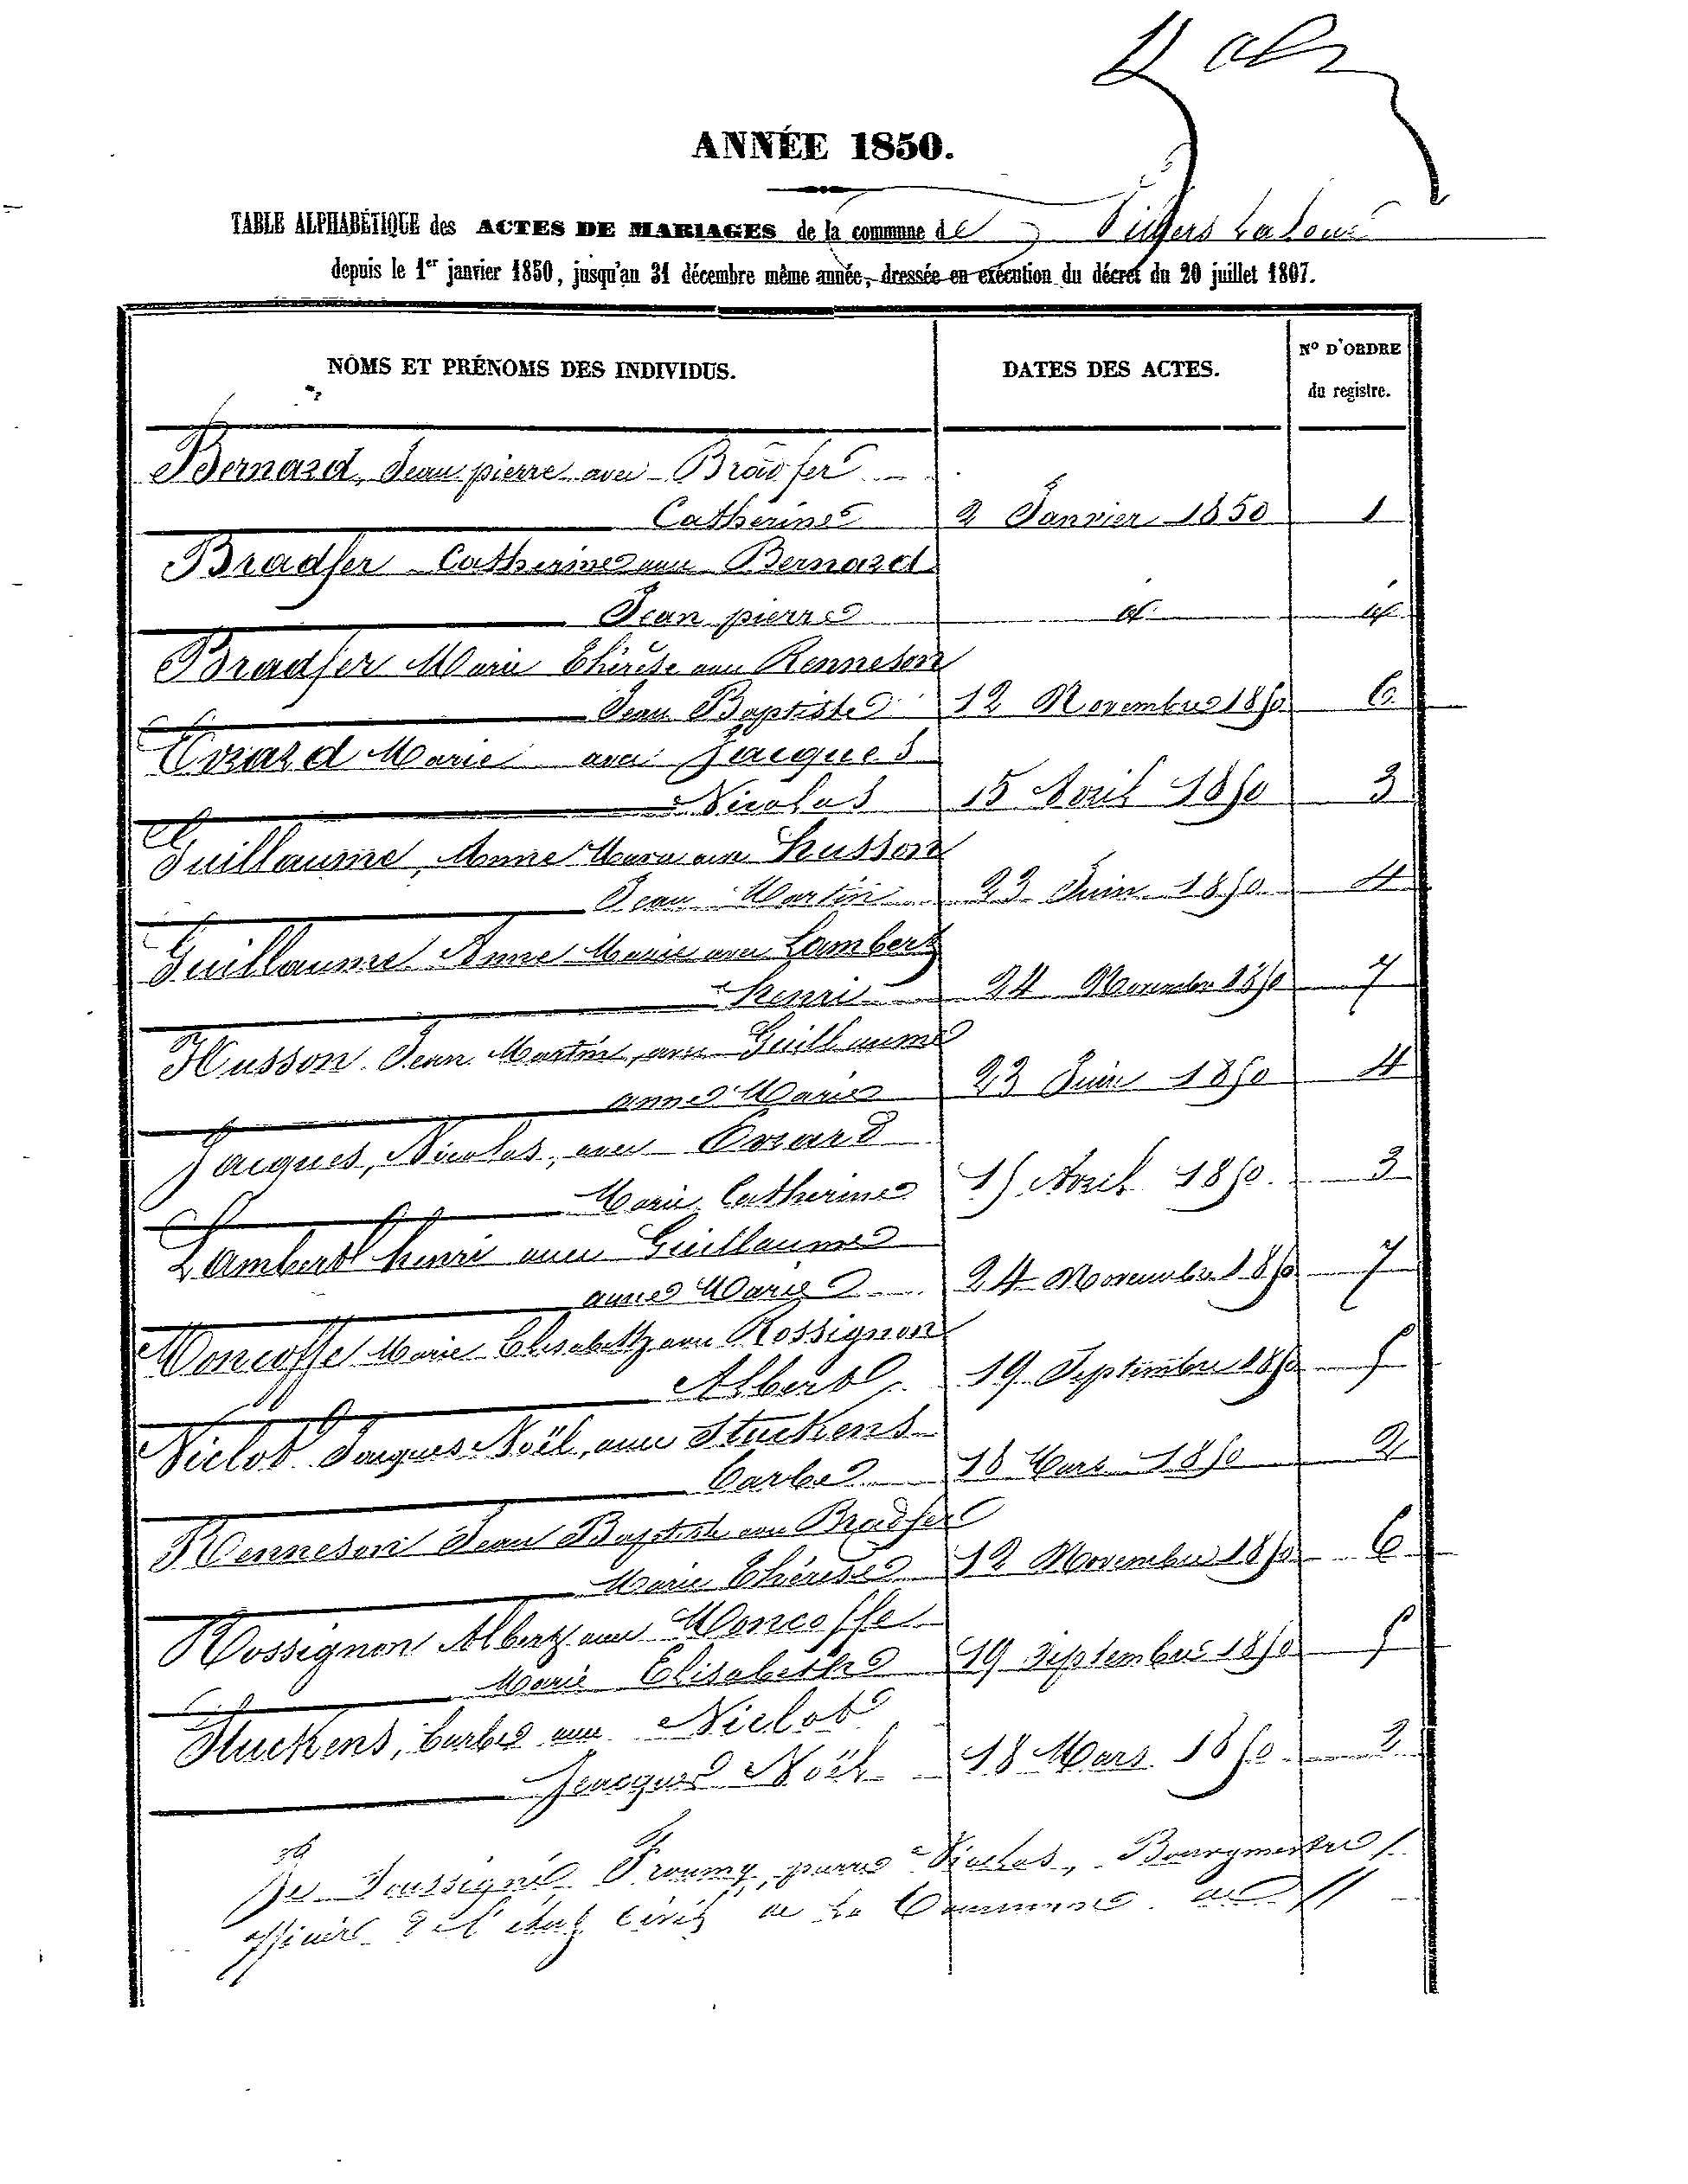 ANNÉE 1850.
TABLE ALPHABÉTIQUE des ACTES DE MARIAGES de la commune de Villers La Loue
depuis le 1er janvier 1850, jusqu'an 31 décembre même année, dressée en exécution du décret du 20 juillet 1807.
NOMS ET PRÉNOMS DES INDIVIDUS. DATES DES ACTES. No D'ORDRE
du registre.
Bernard, Jean pierre avec Bradfer
Catherine 2 Janvier 1850 1
Bradfer Catherine avec Bernard
Jean pierre
Bradfer Marie Thérèse avec Renneson
Jean Baptiste 12 Novembre 1850 6
Evrard Marie avec Jacques
Nicolas 15 Avril 1850 3
Guillaume, Anne Marie avec husson
Jean Martin 23 Juin 1850 4
Guillaume Anne Marie avec Lambert
henri 24 Novembre 1850 7
Husson Jean Martin, avec Guillaume
anne Marie 23 Juin 1850 4
Jacques, Nicolas, avec Evrard
Marie Catherine 15 Avril 1850 3
Lambert henri avec Guillaume
anne Marie 24 Novembre 1850 7
Moncoffe Marie Elisabeth avec Rossignon
Albert 19 Septembre 1850 5
Niclot Jacques Noël, avec Stuckens
barbe 18 Mars 1850 2
Renneson Jean Baptiste avec Bradfer
Marie Thérèse 12 Novembre 1850 6
Rossignon Albert avec Moncoffe
Marie Elisabeth 19 septembre 1850 5
Stuckens, barbe avec Niclot
Jacques Noël 18 Mars 1850 2
Je Soussigné pierre Nicolas, Bourgmestre
officier de l'état civil de la Commune de